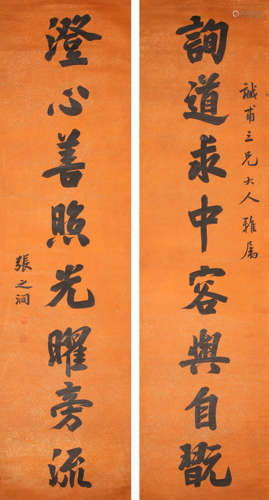 誠甫三兄大人雅属
詢道求中容與自翫
澄心善照光曜旁流
張之洞